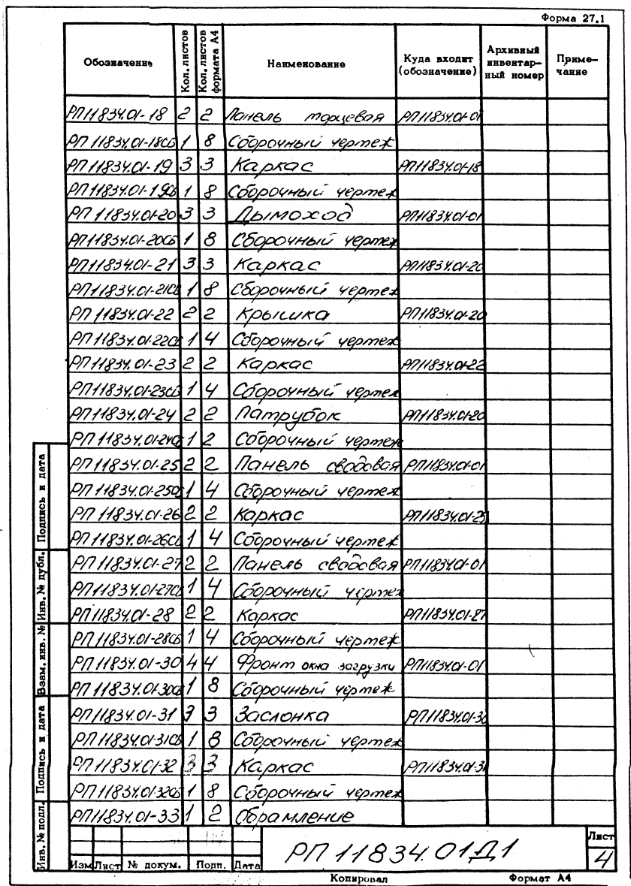 Форма 27.1
Обозначение Кол. листов Кол. листов формата А4 Наименование Куда входит (обозначение) Архивный инвентар- ный номер Приме- чание
РП11834.01-18 2 2 Панель торцевая РП11834.01-01
РП 11834.01-18СБ 1 8 Сборочный чертеж
РП11834.01-19 3 3 Каркас РП11834.01-18
РП11834.01-19СБ 1 8 Сборочный чертеж
РП 11834.01-20 3 3 Дымоход РП11834.01-01
РП 11834.01-20СБ 1 8 Сборочный чертеж
РП11834.01-21 3 3 Каркас РП11834.01-20
РП11834.01-21СБ 1 8 Сборочный чертеж
РП11834.01-22 2 2 Крышка РП11834.01-20
РП 11834.01-22СБ 1 4 Сборочный чертеж
РП 11834.01-23 2 2 Каркас РП11834.01-22
РП11834.01-23СБ 1 4 Сборочный чертеж
РП11834.01-24 2 2 Патрубок РП11834.01-20
РП 11834.01-24СБ 1 2 Сборочный чертеж
РП 11834.01-25 2 2 Панель сводовая РП11834.01-01
РП 11834.01-25СБ 1 4 Сборочный чертеж
РП 11834.01-26 2 2 Каркас РП11834.01-25
РП 11834.01-26СБ 1 4 Сборочный чертеж
РП11834.01-27 2 2 Панель сводовая РП11834.01-01
РП11834.01-27СБ 1 4 Сборочный чертеж
РП11834.01-28 2 2 Каркас РП11834.01-27
РП 11834.01-28СБ 1 4 Сборочный чертеж
РП11834.01-30 4 4 Фронт окна загрузки РП11834.01-01
РП 11834.01-30СБ 1 8 Сборочный чертеж
РП11834.01-31 3 3 Заслонка РП11834.01-30
РП 11834.01-31СБ 1 8 Сборочный чертеж
РП11834.01-32 3 3 Каркас РП11834.01-31
РП11834.01-32СБ 1 8 Сборочный чертеж
РП11834.01-33 1 2 Обрамление
Инв. № подл. Подпись и дата Взам. инв. № Инв. № дубл. Подпись и дата
Изм Лист № докум. Подп. Дата
РП 11834.01Д1
Лист
4
Копировал Формат А4